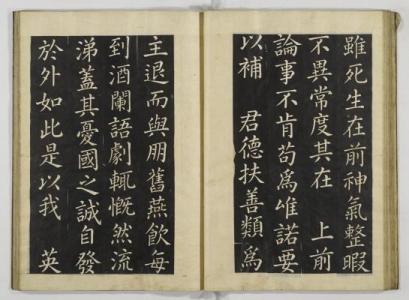 雖死生在前神氣整暇
不異常度其在　上前
論事不肯苟爲唯諾要
以補　君德扶善類爲
主退而與朋舊燕飲每
到酒闌語劇輒慨然流
涕蓋其憂國之誠自發
於外如此是以我　英